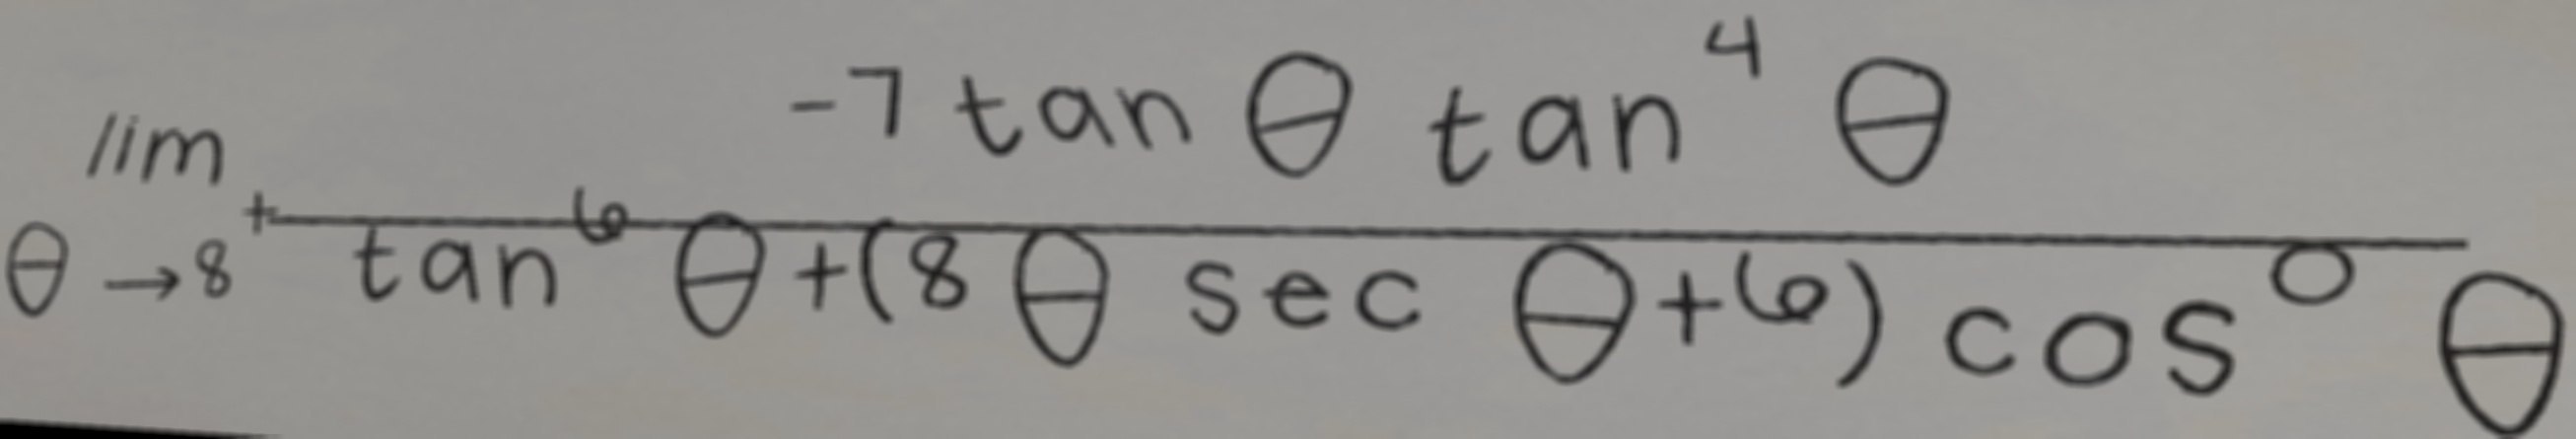 \lim_{\theta \to 8^+} \frac{-7 \tan \theta \tan^4 \theta}{\tan^6 \theta + (8 \theta \sec \theta + 6) \cos^0 \theta}